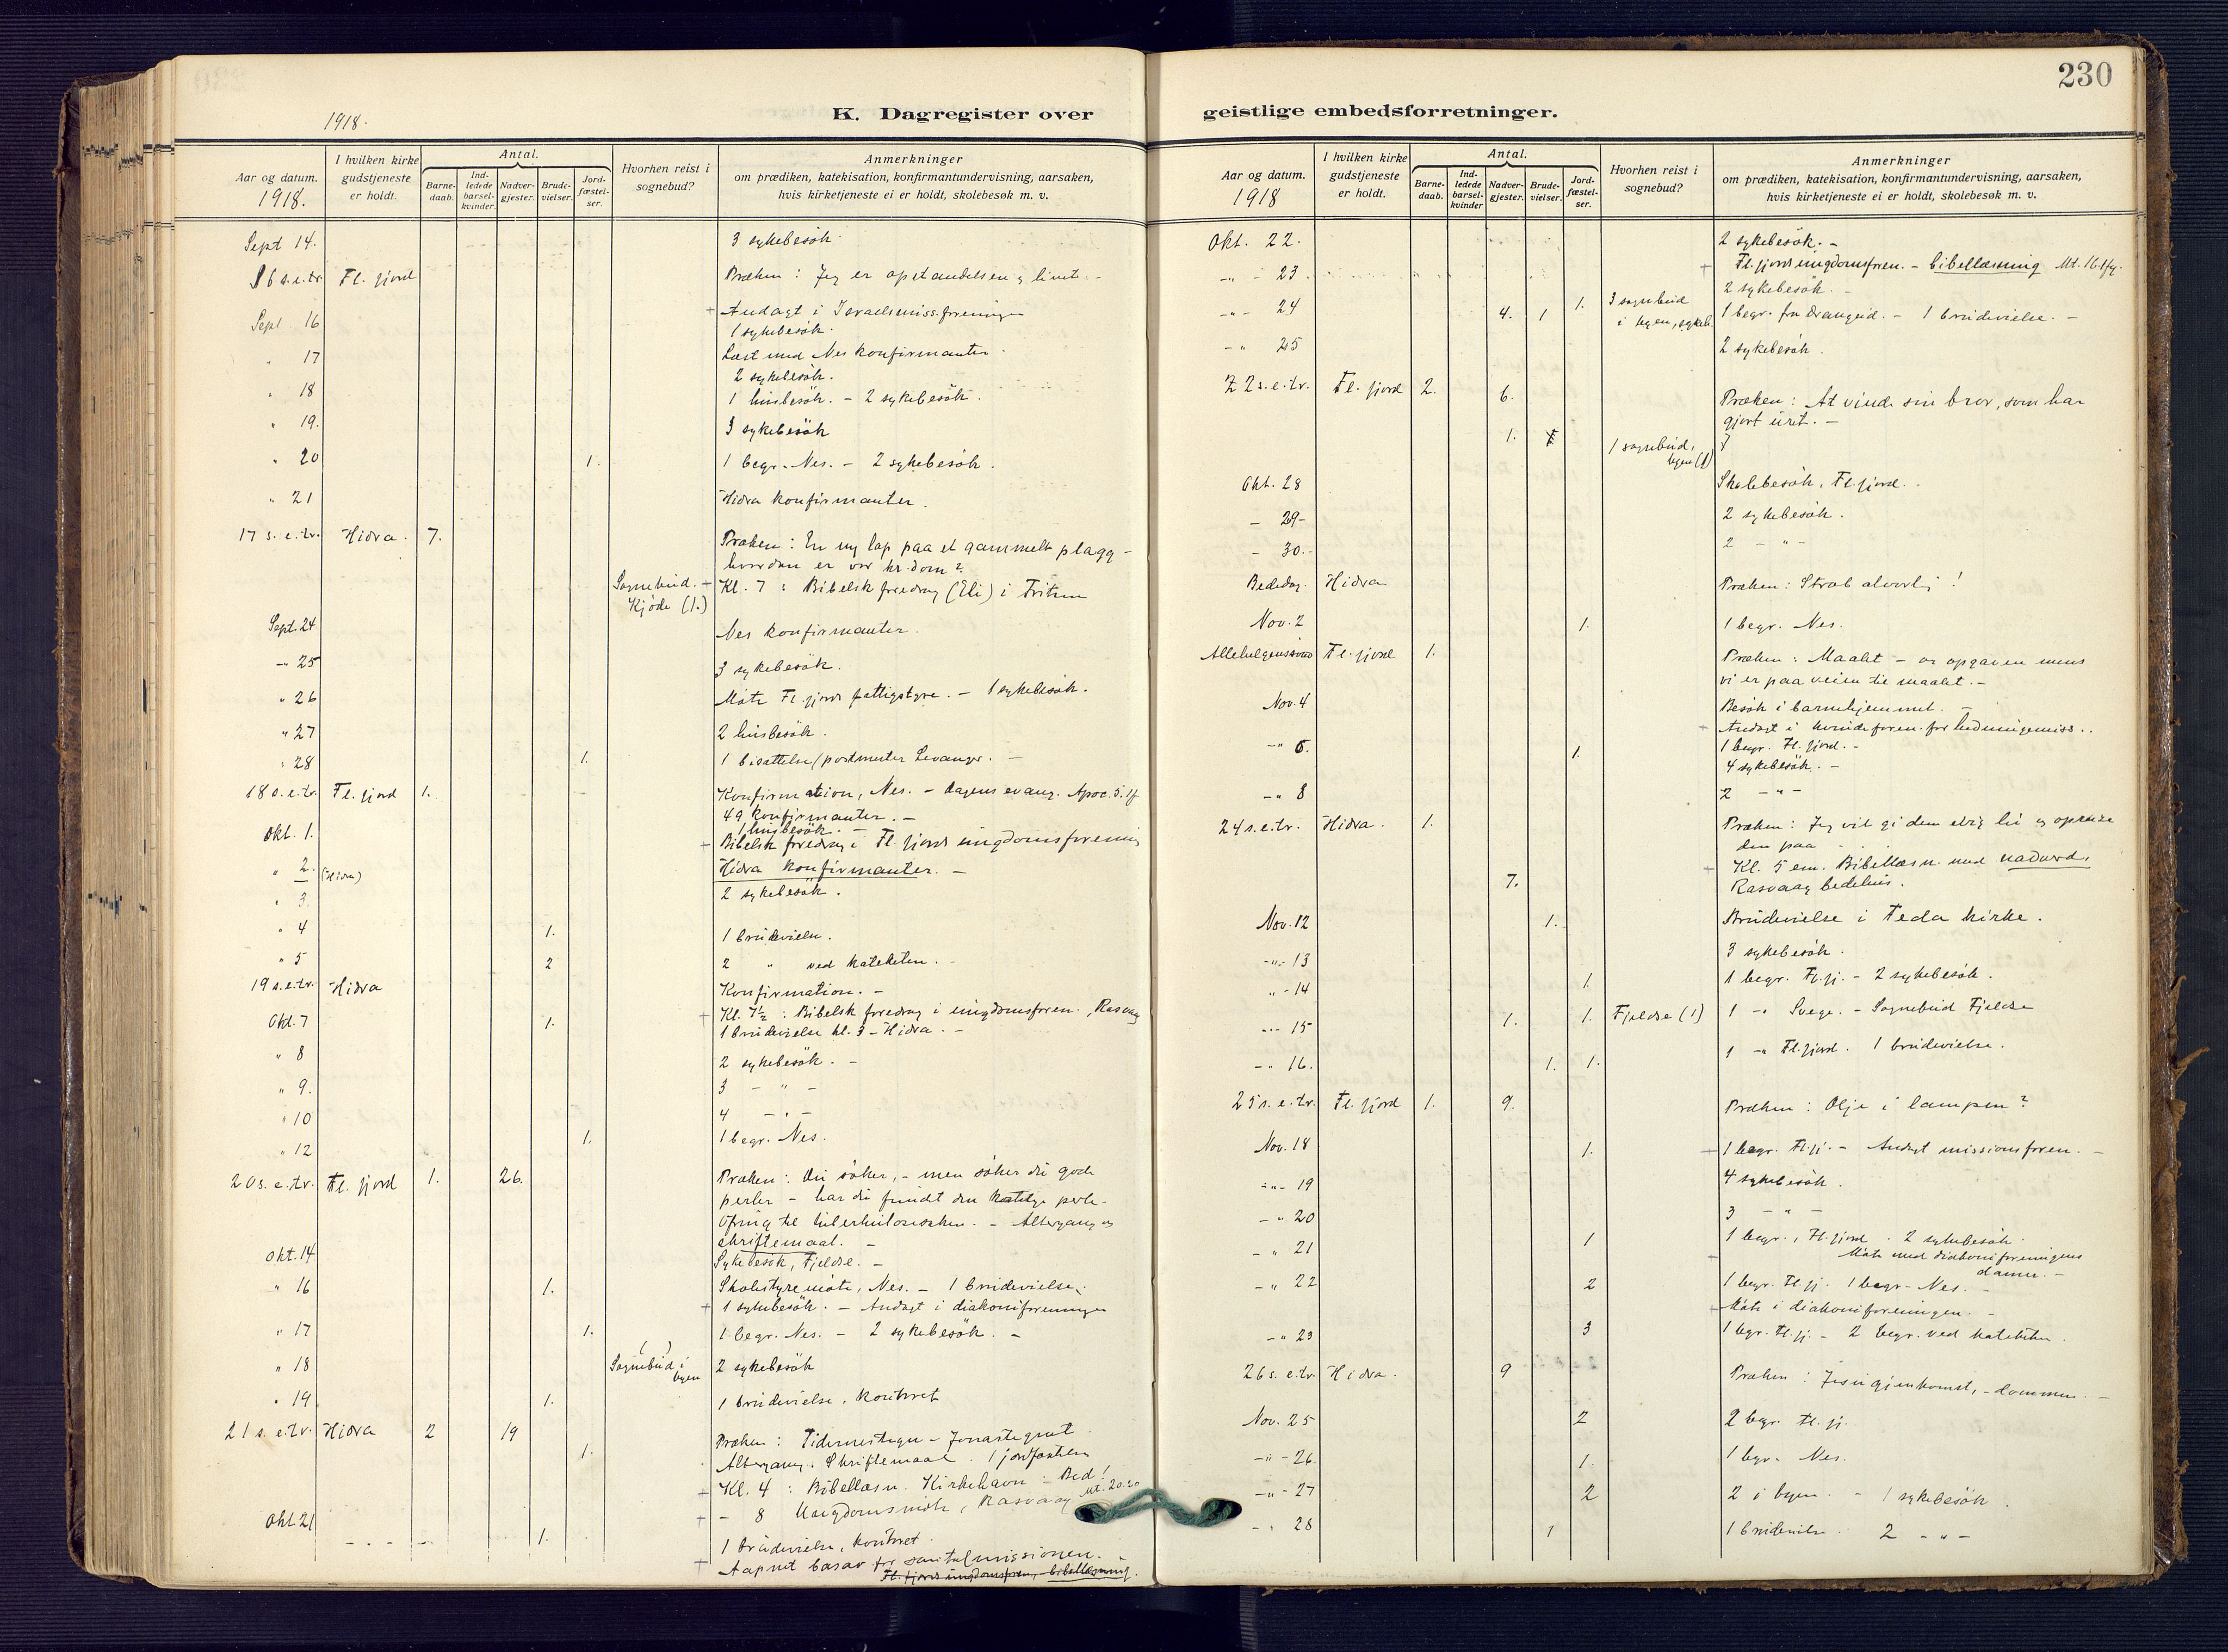 230
1918.
K. Dagregister over
Aar og datum.
1918.
I hvilken kirke
gudstjeneste
er holdt.
Antal.
Barne-
daab.
Ind-
ledede
barsel-
kvinder.
Nadver-
gjester.
Brude-
vielser.
Jord-
fæstel-
ser.
Hvorhen reist i
sognebud?
Anmerkninger
om prædiken, katekisation, konfirmantundervisning, aarsaken,
hvis kirketjeneste ei er holdt, skolebesøk m. v.
Sept 14. 3 sykebesök.
16 s.e.tr. Fl. fjord Præken: Jeg er opstandelsen og livet. -
+ Andagt i Israelsmiss.foreningen
Sept 16 1 sykebesök.
" 17 Læst med Nes konfirmanter.
2 sykebesök.
" 18 1 husbesök. - 2 sykebesök.
" 19. 3 sykebesök
" 20 1. 1 begr. Nes. - 2 sykebesök.
" 21 Hidra konfirmanter.
17 s.e.tr. Hidra. 7. Præken: En ny lap paa et gammelt plagg -
hvordan er vor kr.dom?
Sognebud. - Kl. 7: Bibelsk foredrag (Eli) i
Kjöde (1.)
Sept. 24 Nes konfirmanter.
-"- 25 3 sykebesök.
" 26 Möte Fl. fjord fattigstyre. - 1 sykebesök.
" 27 2 husbesök.
" 28 1. 1 bisættelse (postmester Levanger. -
18 s.e.tr. Fl. fjord 1. Konfirmation, Nes. - dagens evang. Apoc. 5.1f
49 konfirmanter. -
Okt. 1. 1 husbesök. -
+ Bibelsk foredrag i Fl. fjord ungdomsforening
" 2. (Hidra) Hidra konfirmanter. -
" 3. 2 sykebesök.
" 4 1. 1 brudevielse.
" 5 2 2 " ved katekiten. -
19 s.e.tr. Hidra Konfirmation. -
+ Kl. 7½: Bibelsk foredrag i ungdomsforen., Rasvaag
Okt. 7 1. 1 brudevielse kl. 3 - Hidra. -
" 8 2 sykebesök. -
" 9. 3 - " -
" 10 4 - " -
" 12 1. 1 begr. Nes.
20 s.e.tr. Fl. fjord 1. 26. Præken: Du söker, - men söker du gode
perler - har du fundet den kostelige perle.
Ofring til tuberkulosesaken. - Altergang og
skriftemaal. -
Okt. 14 Sykebesök, Fjeldse. -
" 16 1. Skolestyremöte, Nes. - 1 brudevielse.
+ 1 sykebesök. - Andagt i diakoniforeningen
" 17 1. 1 begr. Nes. - 2 sykebesök. -
( )
" 18 Sognebud i 2 sykebesök
byen
" 19 1. 1 brudevielse, kontoret
21 s.e.tr. Hidra 2 19 Præken: Tidernes tegn - Jonastegnet
1. Altergang. Skriftemaal. 1 jordfæstelse
+ Kl. 4: Bibellæsn. Kirkehavn: Bed!
+ - 8 Ungdomsmöte, Rasvaag Mt. 20.20
Okt. 21 1. 1 brudevielse, kontoret.
+ Aapnet basar for santalmissionen. -
Fl. fjord ungdomsforen, bibellæsning.
geistlige embedsforretninger.
Aar og datum.
1918
I hvilken kirke
gudstjeneste
er holdt.
Antal.
Barne-
daab.
Ind-
ledede
barsel-
kvinder
Nadver-
gjester.
Brude-
vielser.
Jord-
fæstel-
ser.
Hvorhen reist i
sognebud?
Anmerkninger
om prædiken, katekisation, konfirmantundervisning, aarsaken,
hvis kirketjeneste ei er holdt, skolebesøk m. v.
Okt. 22. 2 sykebesök. -
+ Fl. fjord ungdomsforen. - bibellæsning Mt. 16.1fg.
-"- 23 2 sykebesök. -
-"- 24 4. 1 1. 3 sognebud 1 begr. fra Drangeid. - 1 brudevielse. -
i byen, sykeh.
-"- 25 2 sykebesök.
22 s.e.tr. Fl. fjord 2. 6. Præken: At vinde sin bror, som har
gjort uret. -
1. 1 sognebud,
byen (1)
Okt. 28 Skolebesök, Fl. fjord.
- 29- 2 sykebesök.
- 30.- 2 - " -
Bededag. Hidra Præken: Stræb alvorlig!
Nov. 2 1. 1 begr. Nes.
Allehelgenssönd Fl. fjord 1. Præken: Maalet - og opgaven mens
vi er paa veien til maalet. -
Nov. 4 Besök i barnehjemmet. -
+ Andagt i kvindeforen. for hedningemiss..
-"- 6. 1. 1 begr. Fl. fjord. -
4 sykebesök. -
-"- 8 2 - " -
24 s.e.tr. Hidra. 1. Præken: Jeg vil gi dem evig liv og opreise
den paa
+ Kl. 5 em. Bibellæsn. med nadverd.
7. Rasvaag bedehus.
Nov. 12 1. Brudevielse i Feda kirke.
-"- 13 3 sykebesök.
"- 14 1. 1 begr. Fl.fj. - 2 sykebesök.
-"- 15 1. 1. Fjeldse (1) 1 -" Svege. - Sognebud Fjeldse
-"- 16. 1. 1. 1 -" Fl. fjord. 1 brudevielse.
25 s.e.tr. Fl. fjord 1. 9. Præken: Olje i lampen?
Nov. 18 1. + 1 begr. Fl.fj. - Andagt missionsforen. -
-"- 19 4 sykebesök.
-"- 20 3 - " -
-"- 21 1 1 begr., Fl. fjord. 2 sykebesök.
+ Möte med diakoniforeningens
damer. -
-"- 22 2 1 begr. Fl. fj. 1 begr. Nes. -
+ Möte i diakoniforeningen. -
-"- 23 3 1 begr. Fl. fj. - 2 begr. ved katekiten.
26 s.e.tr. Hidra. 9 Præken: Jesu gjenkomst, - dommen. -
Nov. 25 2 2 begr. Fl. fj.
-"- 26. 1. 1 begr. Nes.
-"- 27 2 2 i byen. - 1 sykebesök.
-"- 28 1 1 brudevielse. 2 - " -